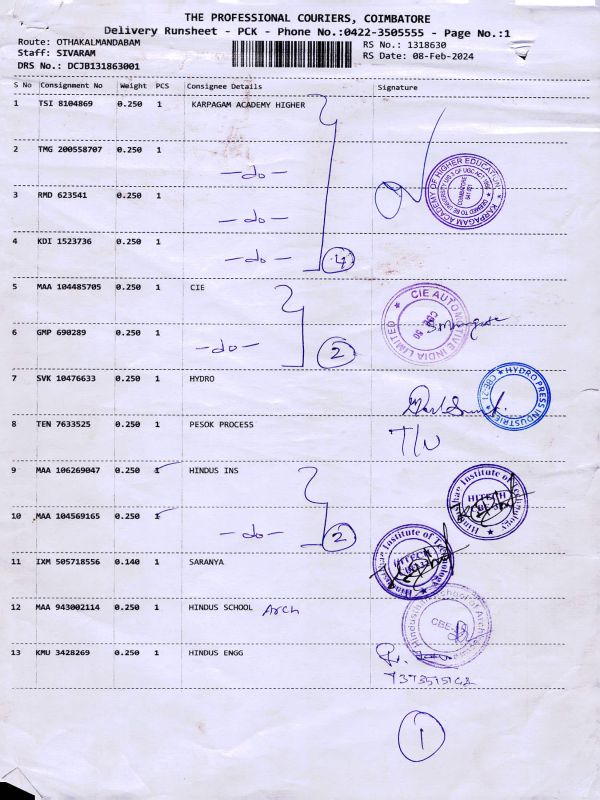 THE PROFESSIONAL COURIERS, COIMBATORE
Delivery Runsheet - PCK - Phone No.:0422-3505555 - Page No.:1
Route: OTHAKALMANDABAM RS No.: 1318630
Staff: SIVARAM RS Date: 08-Feb-2024
DRS No.: DCJB131863001
S No Consignment No Weight PCS Consignee Details Signature
1 TSI 8104869 0.250 1 KARPAGAM ACADEMY HIGHER
2 TMG 200558707 0.250 1 -do-
3 RMD 623541 0.250 1 -do-
KARPAGAM ACADEMY OF HIGHER EDUCATION
4 KDI 1523736 0.250 1 -do- 4
5 MAA 104485705 0.250 1 CIE
CIE AUTOMOTIVE INDIA LIMITED
6 GMP 690289 0.250 1 -do- 2
7 SVK 10476633 0.250 1 HYDRO
HYDRO PRESS INDUSTRIES CBE-21
8 TEN 7633525 0.250 1 PESOK PROCESS
9 MAA 106269047 0.250 1 HINDUS INS
Hindusthan Institute of Technology
HITECH
10 MAA 104569165 0.250 1 -do- 2
Hindusthan Institute of Technology
HITECH
11 IXM 505718556 0.140 1 SARANYA
12 MAA 943002114 0.250 1 HINDUS SCHOOL Arch
Hindusthan School of Architecture
13 KMU 3428269 0.250 1 HINDUS ENGG
1